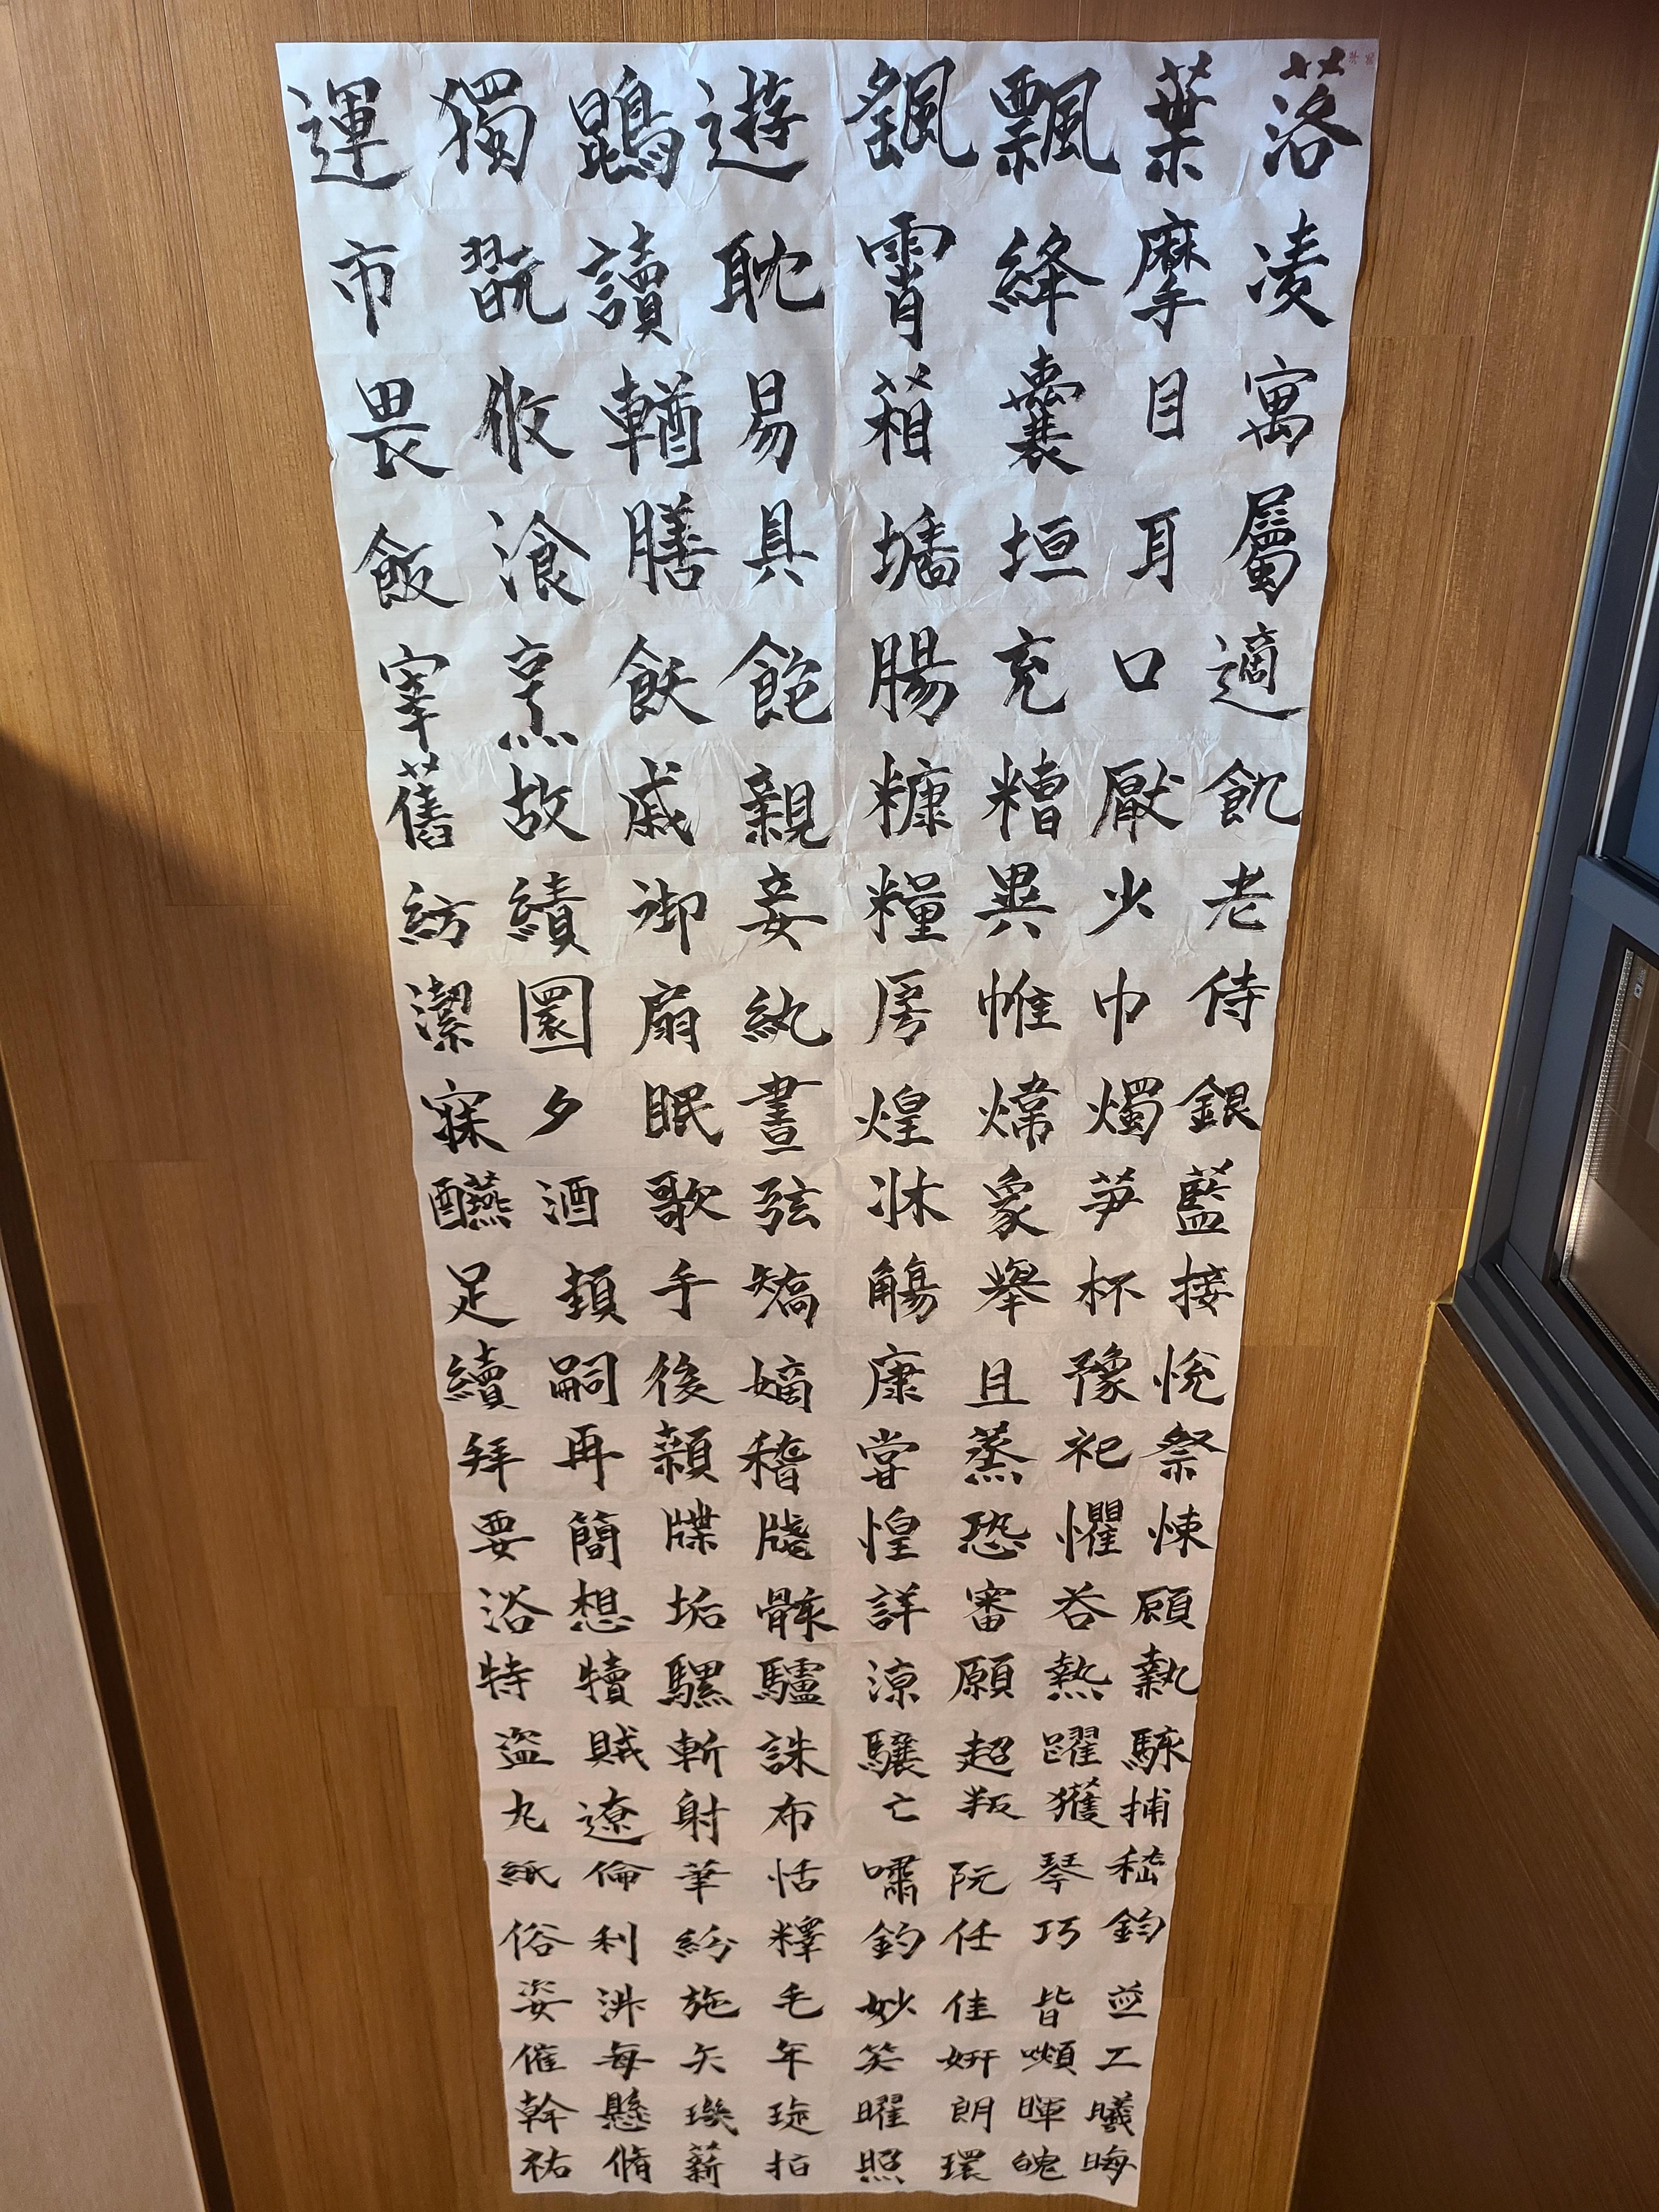 落葉飄颻遊鵾獨運
凌摩絳霄耽讀翫市
寓目囊葙易輶攸畏
屬耳垣墻具膳湌飯
適口充腸飽飫烹宰
飢厭糟糠親戚故舊
老少異糧妾御績紡
侍巾帷房紈扇圜潔
銀燭煒煌晝眠夕寐
藍笋象牀弦歌酒醼
接杯舉觴矯手頓足
悅豫且康嫡後嗣續
祭祀蒸甞稽顙再拜
悚懼恐惶牋牒簡要
顧答審詳骸垢想浴
執熱願涼驢騾犢特
駭躍超驤誅斬賊盜
捕獲叛亡布射遼丸
嵇琴阮嘯恬筆倫紙
鈞巧任釣釋紛利俗
並皆佳妙毛施淑姿
工嚬姸笑年矢每催
曦暉朗曜琁璣懸幹
晦魄環照指薪脩祐